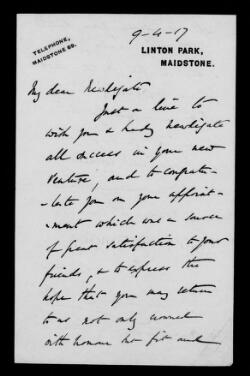 9-4-17
TELEPHONE,
MAIDSTONE 69.
LINTON PARK,
MAIDSTONE.
My dear Newdigate
Just a line to
wish you & Lady Newdigate
all success in your new
venture, and to congratu-
-late you on your appoint-
-ment which was a source
of great satisfaction to your
friends, & to express the
hope that you may return
to us not only covered
with honour but fit and